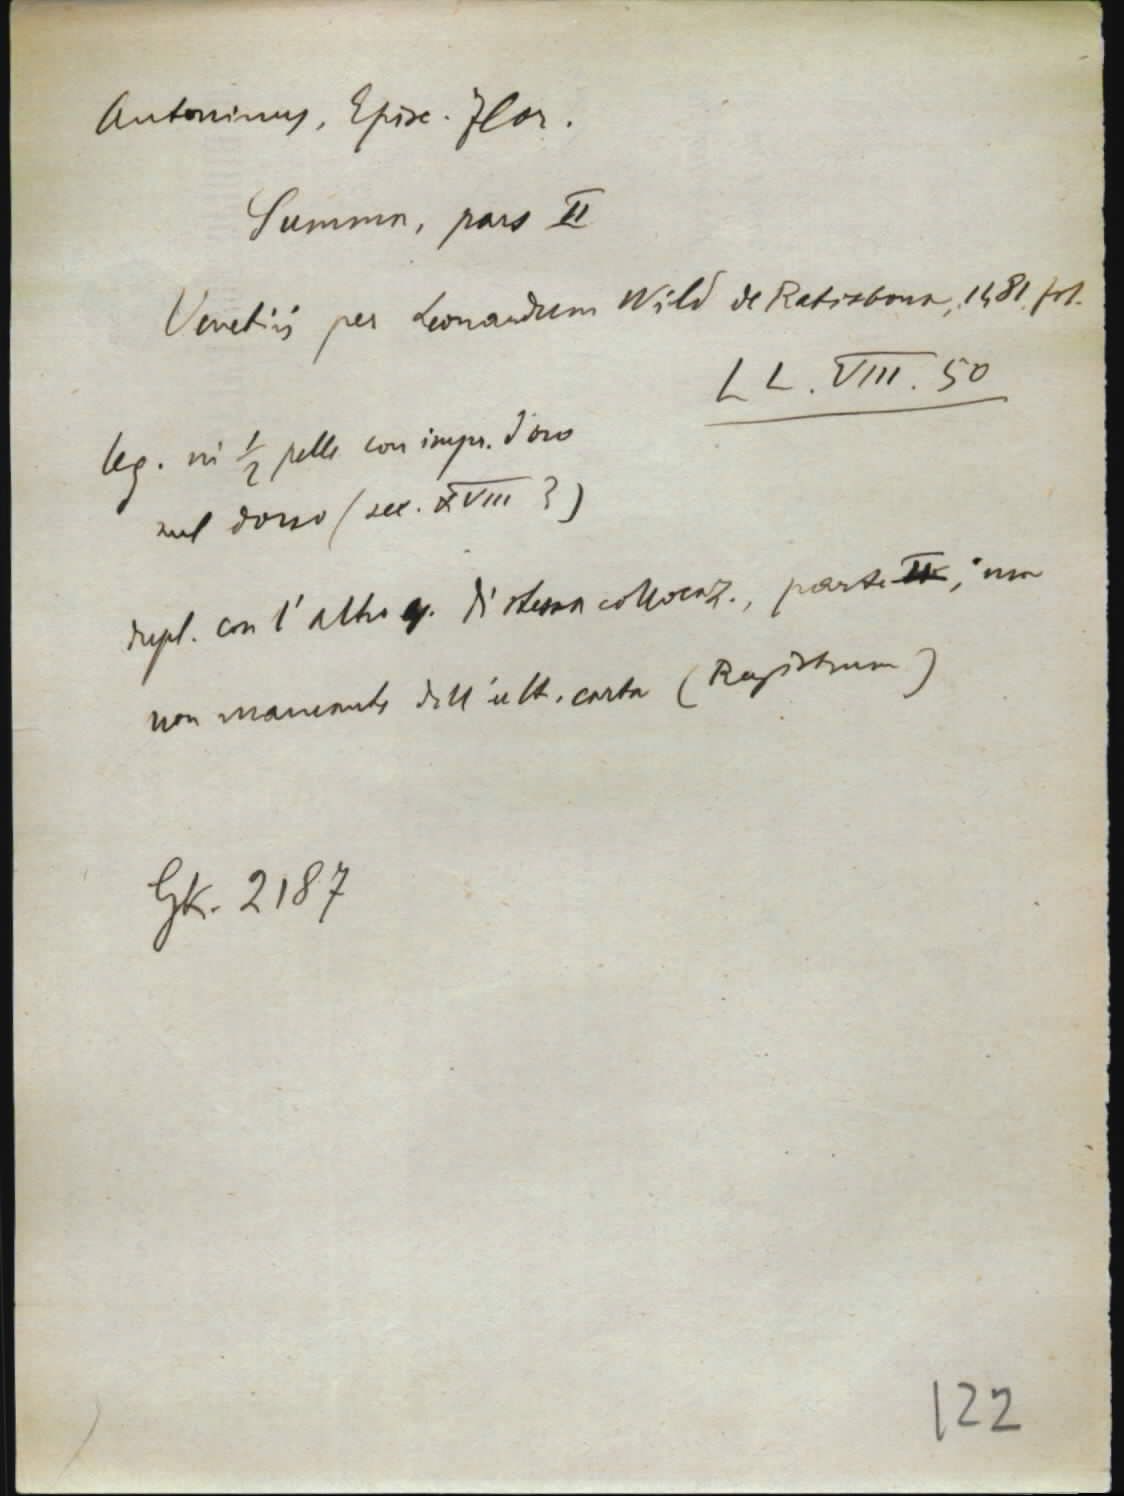 Antoninus, Episc. Flor.
Summa, pars II
Venetiis per Leonardum Wild de Ratisbona, 1481. fol.
LL. VIII. 50
leg. in 1/2 pelle con impr. d'oro
sul dorso (sec. XVIII?)
dupl. con l'altro di stessa collocaz., parte II, ma
non mancante dell'ult. carta (Registrum)
GK. 2187
122